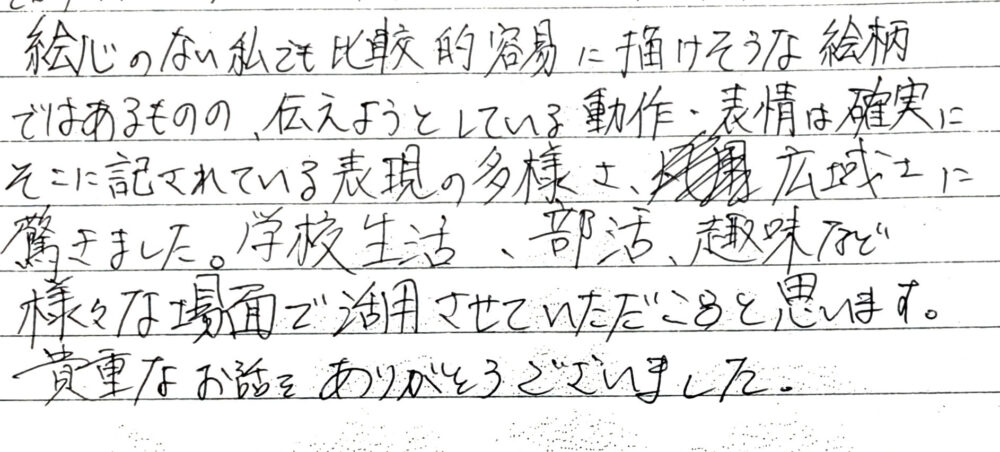 絵心のない私でも比較的容易に描けそうな絵柄
ではあるものの、伝えようとしている動作・表情は確実に
そこに記されている表現の多様さ、広域さに
驚きました。学校生活、部活、趣味など
様々な場面で活用させていただこうと思います。
貴重なお話をありがとうございました。